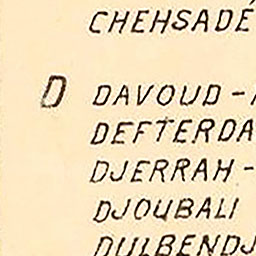 CHEHSADÉ
D DAVOUD -
DEFTERDA
DJERRAH -
DJOUBALI
DULBENDJ